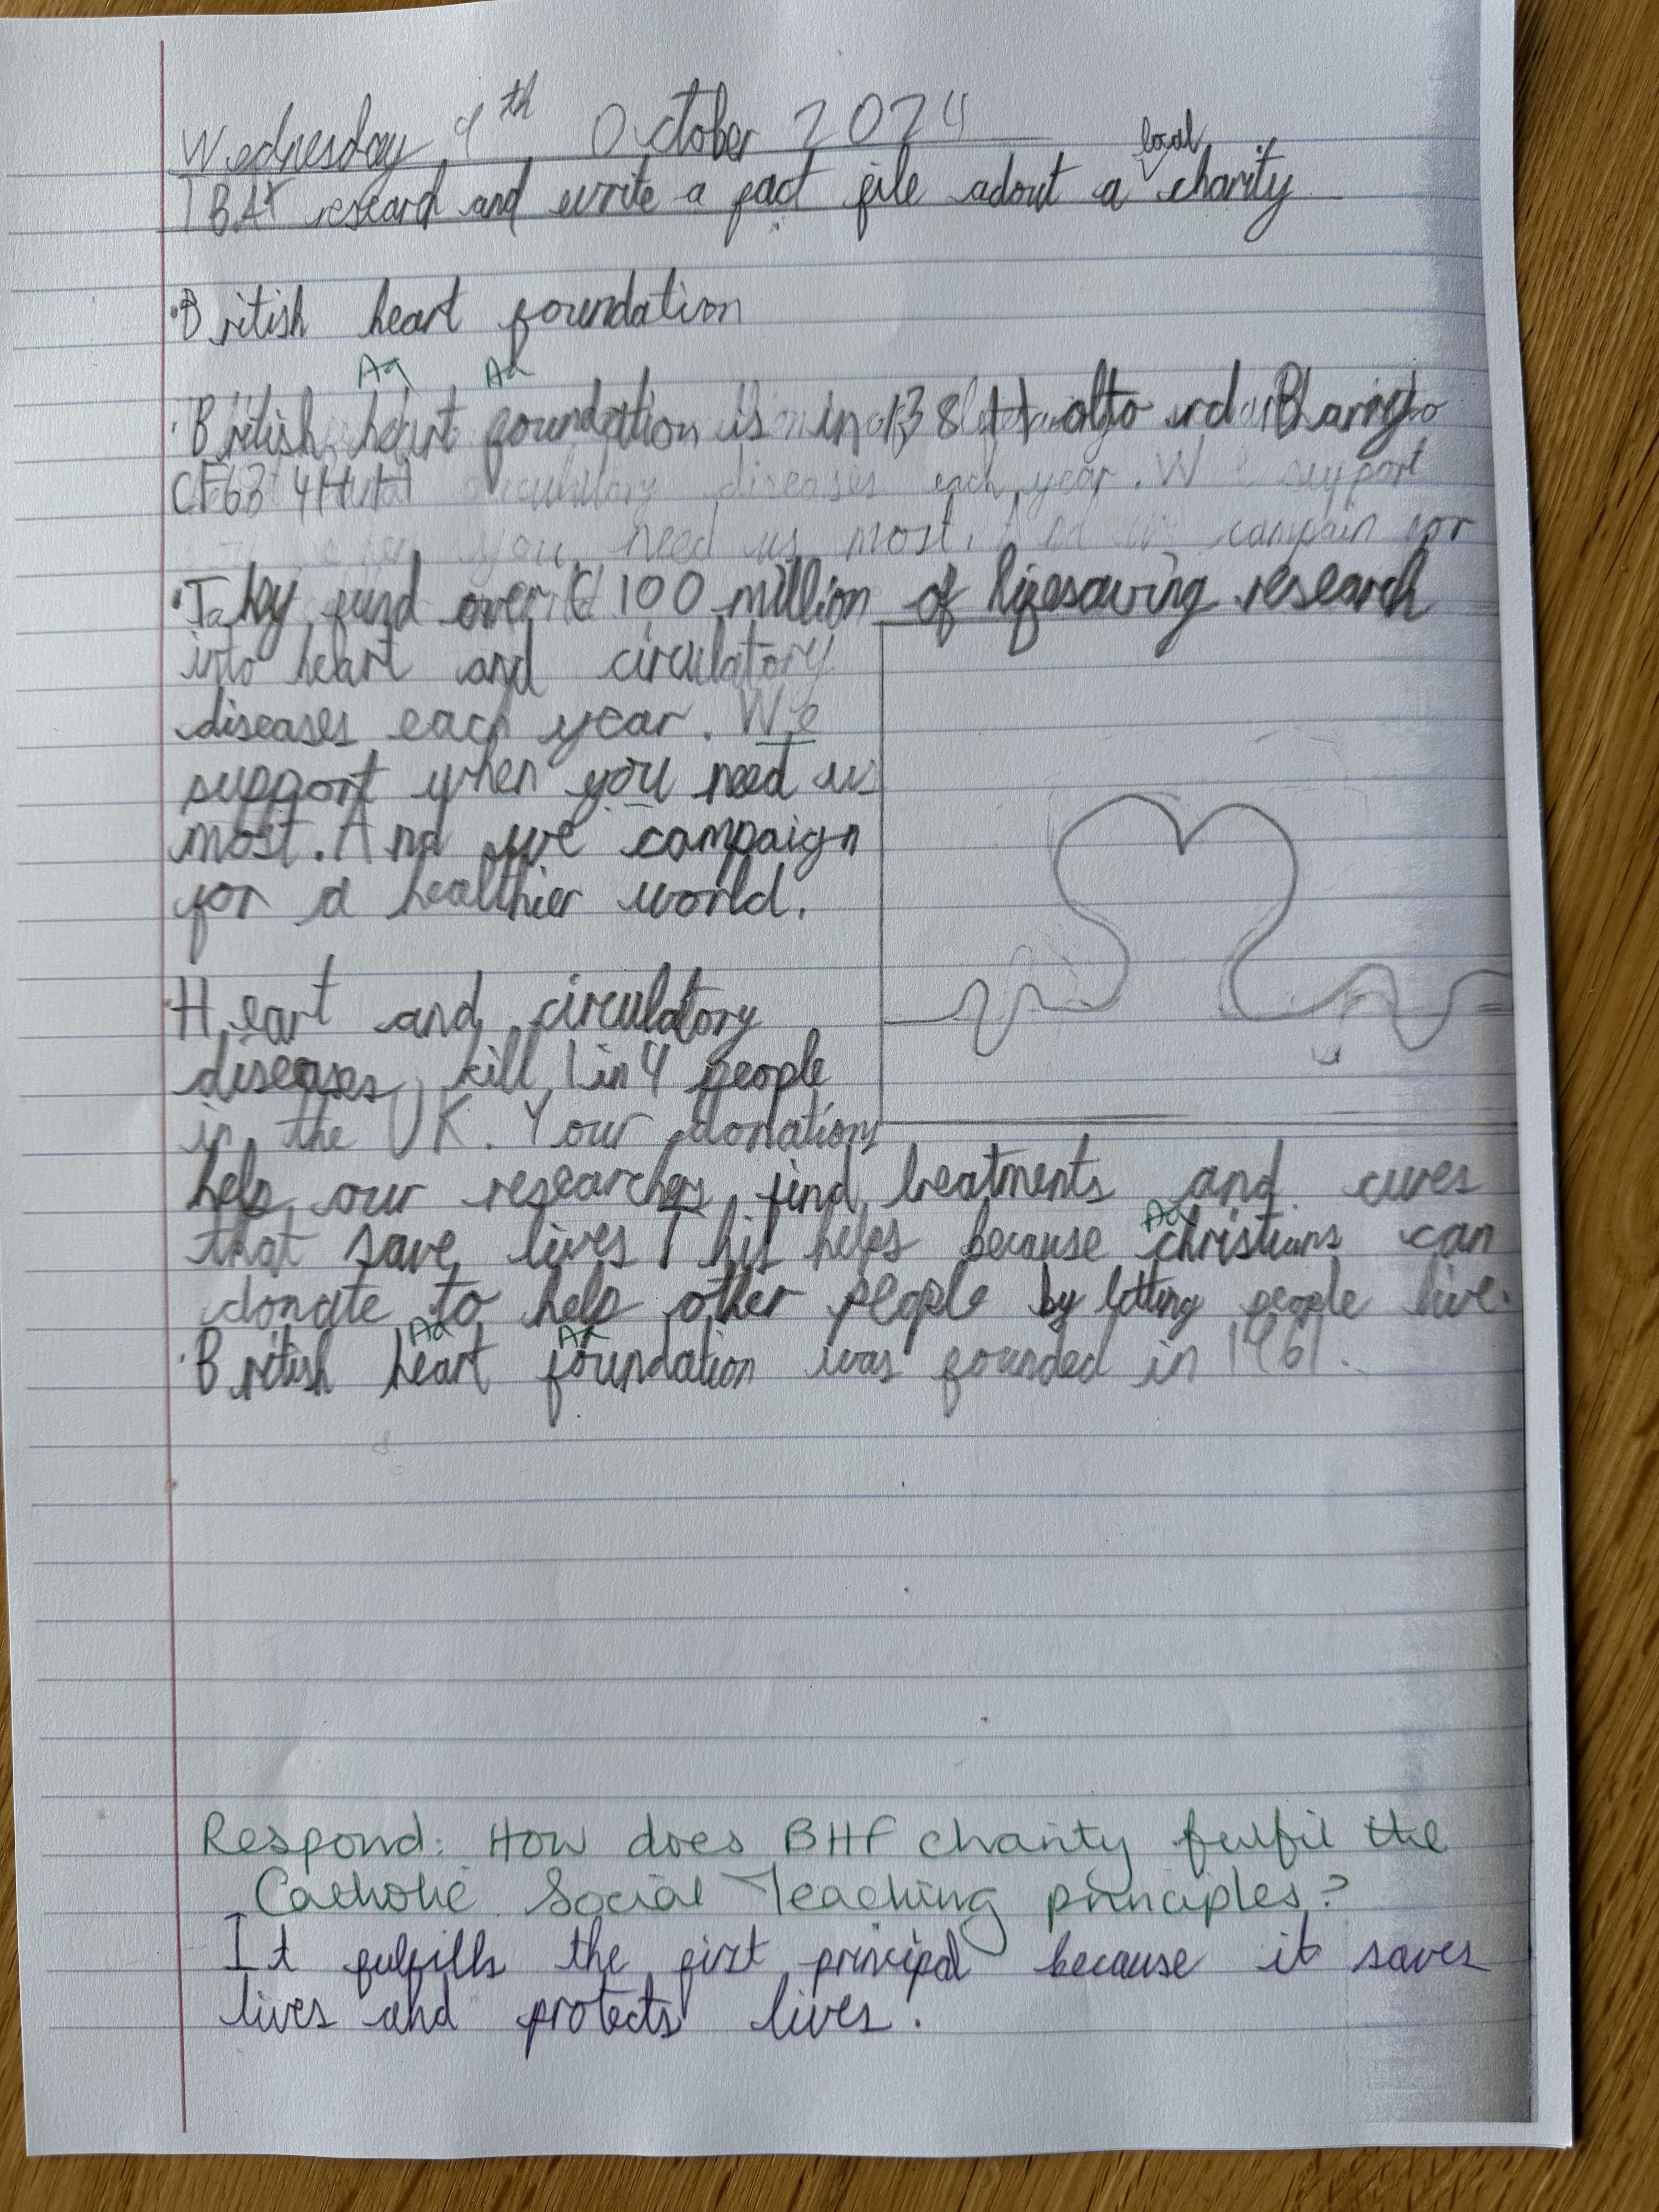 Wednesday 9th October 2024
TBAT research and write a fact file adout a local charity
·British heart foundation
Aa Aa
·British heart foundation is in 138 Holto rd Barry
CF63 4HH
circulatory diseases each year. We support
you need us most. campain for
·They fund over £100 million of lifesaving research
into heart and circulatory
diseases each year. We
support when you need us
most. And we campaign
for a healthier world.
·Heart and circulatory
diseases kill 1 in 4 people
in the UK. Your donations
help our researchers find treatments and cures
Aa
that save lives This helps because christians can
donate to help other people by letting people live.
Aa Aa
·British heart foundation was founded in 1961.
Respond: How does BHF charity fulfil the
Catholic Social Teaching principles?
It fulfills the first principal because it saves
lives and protects lives.